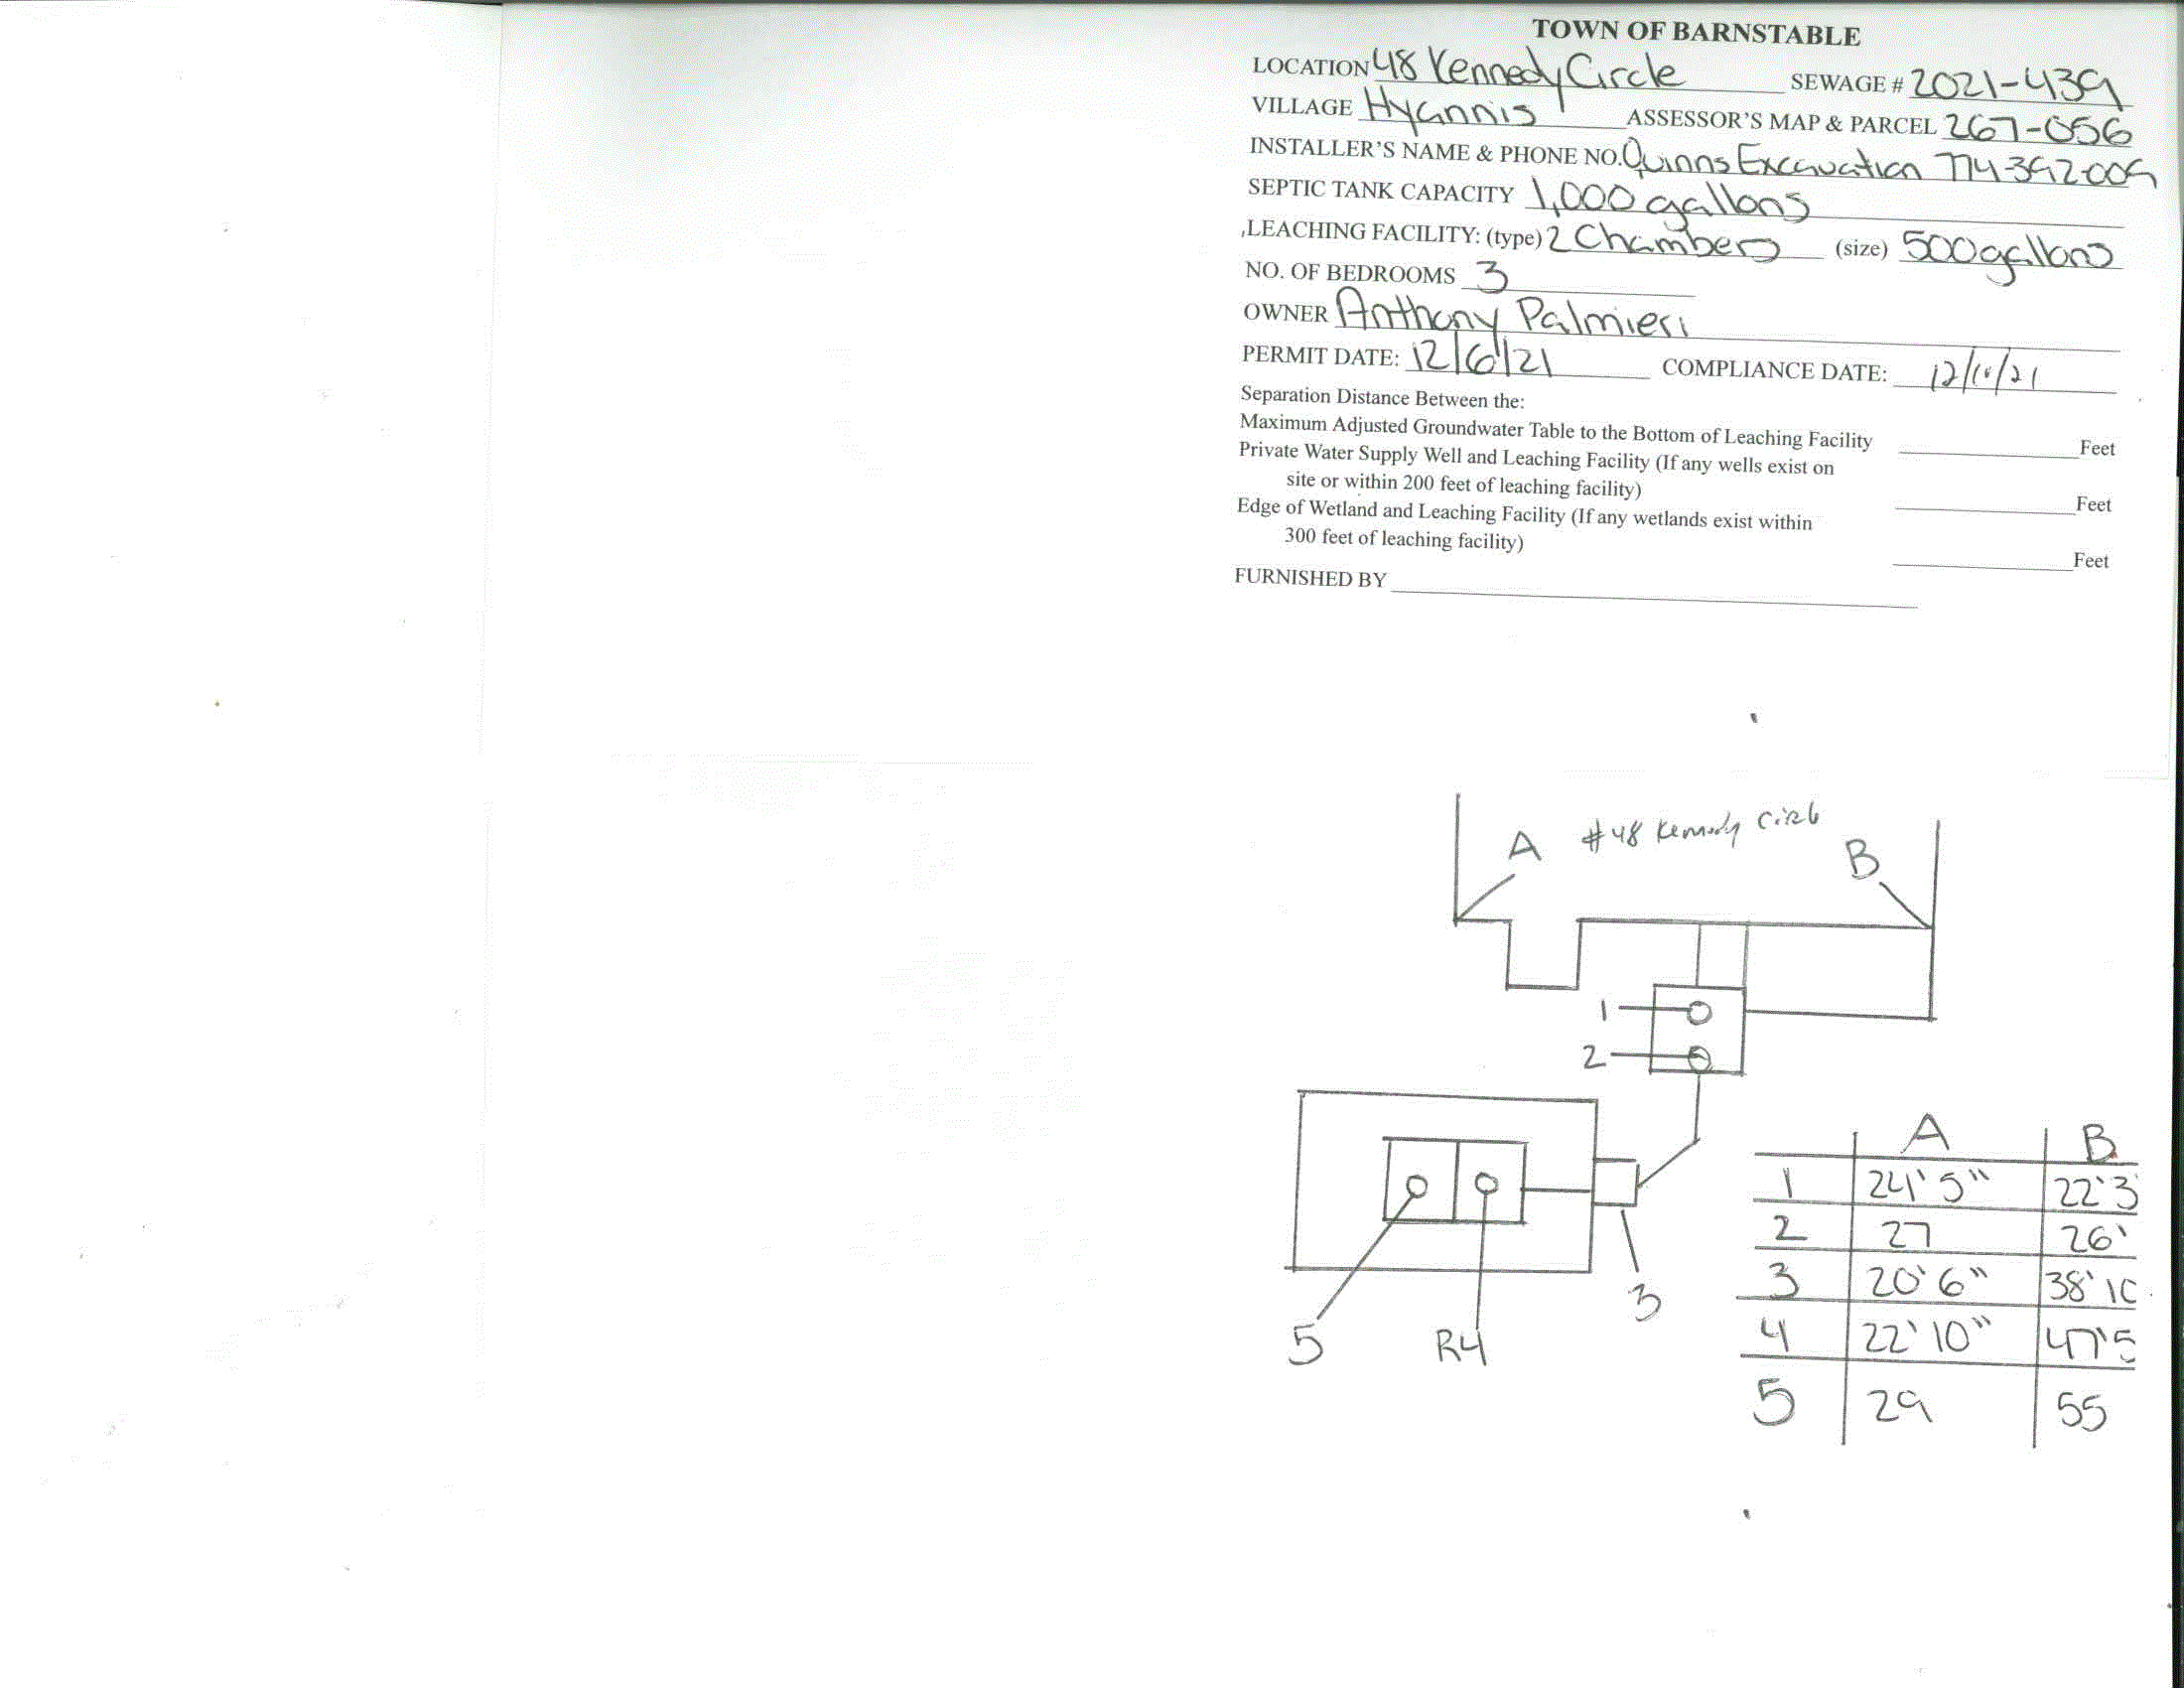 TOWN OF BARNSTABLE
LOCATION 48 Kennedy Circle SEWAGE # 2021-439
VILLAGE Hyannis ASSESSOR'S MAP & PARCEL 267-056
INSTALLER'S NAME & PHONE NO. Quinns Excavation 774-392-009
SEPTIC TANK CAPACITY 1,000 gallons
LEACHING FACILITY: (type) 2 Chambers (size) 500 gallons
NO. OF BEDROOMS 3
OWNER Anthony Palmieri
PERMIT DATE: 12/6/21 COMPLIANCE DATE:
Separation Distance Between the:
Maximum Adjusted Groundwater Table to the Bottom of Leaching Facility Feet
Private Water Supply Well and Leaching Facility (If any wells exist on
site or within 200 feet of leaching facility) Feet
Edge of Wetland and Leaching Facility (If any wetlands exist within
300 feet of leaching facility) Feet
FURNISHED BY
A #48 Kennedy Circle B
1
2
5 R4 3
A B
1 24'5" 22'3
2 27 26'
3 20'6" 38'10
4 22'10" 47'5
5 29 55